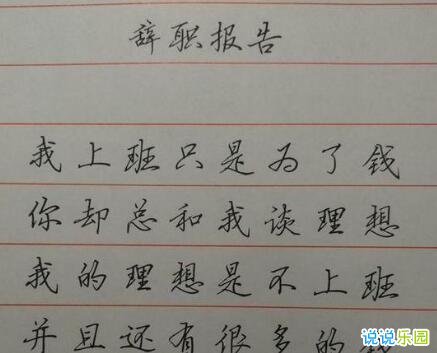 辞职报告
我上班只是为了钱
你却总和我谈理想
我的理想是不上班
并且还有很多的钱
说说乐园